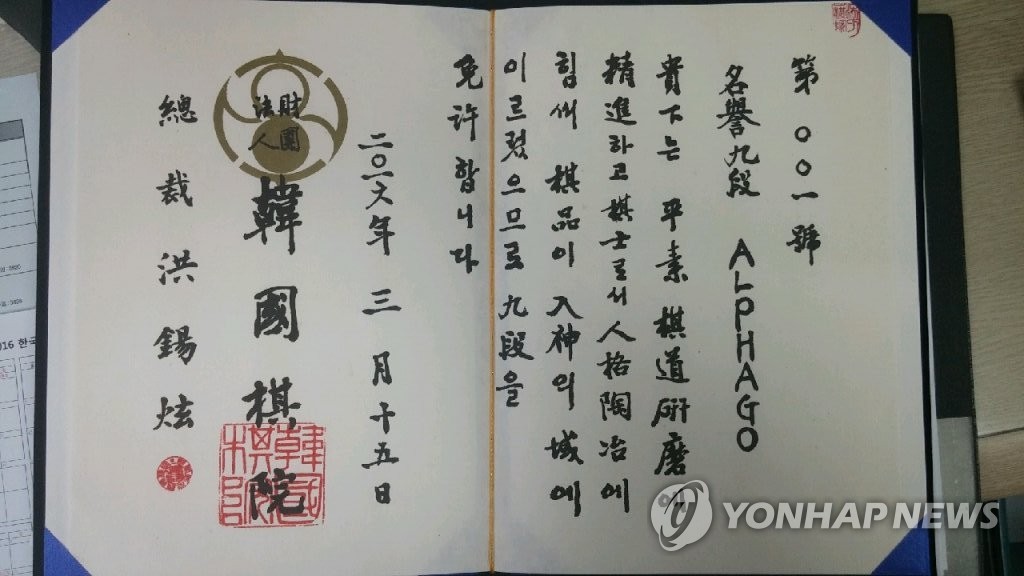 第〇〇一號
名譽九段 ALPHAGO
貴下는 平素 棋道 硏磨에
精進하고 棋士로서 人格陶冶에
힘써 棋品이 入神의 域에
이르렀으므로 九段을
免許합니다
二〇一六年 三月 十五日
財團
法人
韓國棋院
總裁 洪錫炫
016 한국
YONHAP NEWS